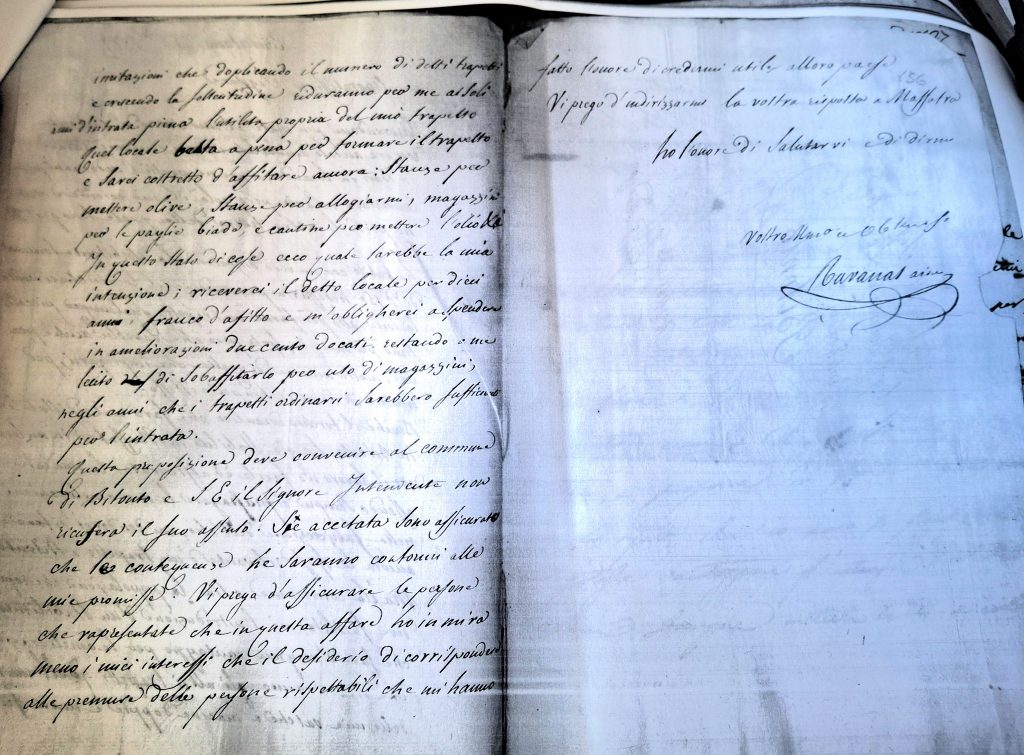 imitazioni che doplicando il numero di detti trapetti
e crescendo la sollecitudine riduranno per me ai soli
anni d'intrata piena l'utileta propria del mio trapetto
Quel locale basta a pena per formare il trapetto
e sarei costretto d'affitare ancora: stanze per
mettere olive, stanze per allogiarmi, magazzini
per le paglie biade, e cantine per mettere l'olio
In questo stato di cose ecco quale sarebbe la mia
intenzione; riceverei il detto locale per dieci
anni, franco d'afitto e m'obligherei a spendere
in ameliorazioni duecento docati restando a me
lecito di sobaffitarlo per uso di magazzini,
negli anni che i trapetti ordinarii sarebbero sufficenti
per l'intrata.
Questa proposizione deve convenire al commune
di Bitonto e S.E il Signore Intendente non
ricusera il suo assenso. Se acectata sono assicurato
che le conteguense he saranno conformi alle
mie promesse. Vi prego d'assicurare le persone
che rapresentate che in questa affare ho in mira
meno i miei interessi che il desiderio di corrispondere
alle premure delle persone rispettabili che mi hanno
fatto l'onore di credermi utile alloro paese
136
Vi prego d'indirizzarmi la vostra risposta a Maffatra
ho l'onore di salutarvi e di dirmi
Vostro Umo e Obbmo
Ravanas aine
le
per